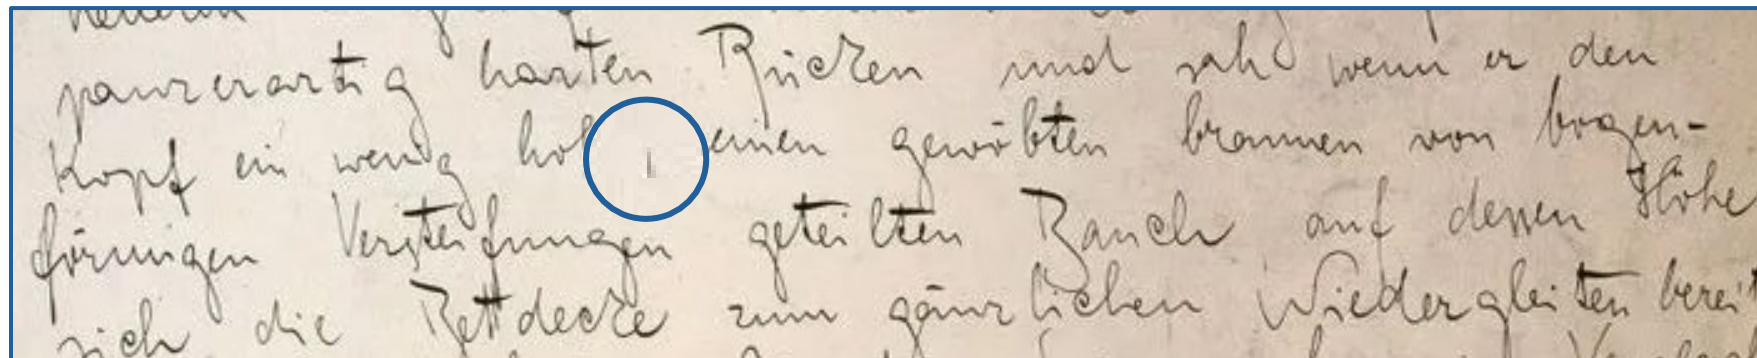 panzerartig harten Rücken und sah wenn er den
Kopf ein wenig hob einen gewöbten braunen von bogen-
förmigen Versteifungen geteilten Bauch auf dessen Höhe
sich die Bettdecke zum gänzlichen Niedergleiten bereit